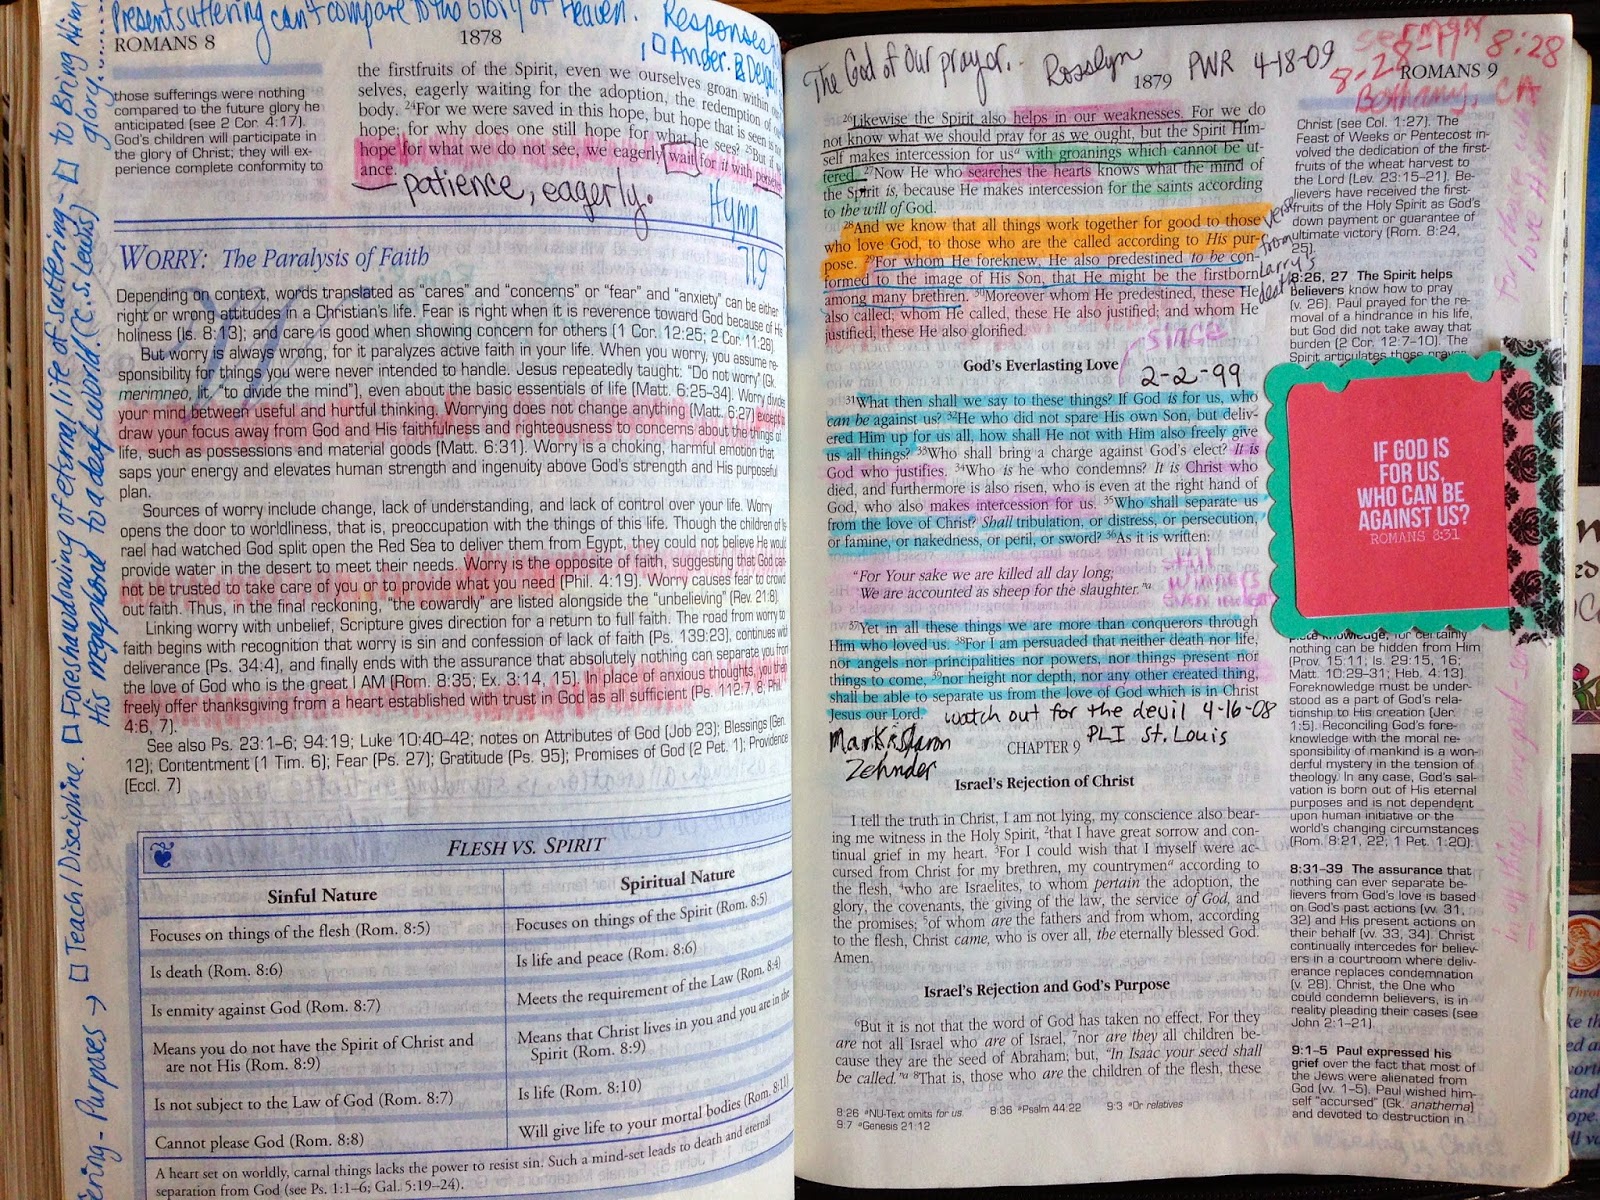 Present suffering can't compare to the Glory of Heaven.
Responses
1 ☐ Anger.
ROMANS 8
1878
those sufferings were nothing
compared to the future glory he
anticipated (see 2 Cor. 4:17).
God's children will participate in
the glory of Christ; they will ex-
perience complete conformity to
the firstfruits of the Spirit, even we ourselves groan within
selves, eagerly waiting for the adoption, the redemption of
body. 24For we were saved in this hope, but hope that is seen is
hope; for why does one still hope for what he sees? 25But if
hope for what we do not see, we eagerly wait for it with
ance.
patience, eagerly.
Hymn
719
WORRY: The Paralysis of Faith
Depending on context, words translated as "cares" and "concerns" or "fear" and "anxiety" can be either
right or wrong attitudes in a Christian's life. Fear is right when it is reverence toward God because of His
holiness (Is. 8:13); and care is good when showing concern for others (1 Cor. 12:25; 2 Cor. 11:28).
But worry is always wrong, for it paralyzes active faith in your life. When you worry, you assume re-
sponsibility for things you were never intended to handle. Jesus repeatedly taught: "Do not worry" (Gk.
merimneo, lit. "to divide the mind"), even about the basic essentials of life (Matt. 6:25–34). Worry divides
your mind between useful and hurtful thinking. Worrying does not change anything (Matt. 6:27) except to
draw your focus away from God and His faithfulness and righteousness to concerns about the things of
life, such as possessions and material goods (Matt. 6:31). Worry is a choking, harmful emotion that
saps your energy and elevates human strength and ingenuity above God's strength and His purposeful
plan.
Sources of worry include change, lack of understanding, and lack of control over your life. Worry
opens the door to worldliness, that is, preoccupation with the things of this life. Though the children of Is-
rael had watched God split open the Red Sea to deliver them from Egypt, they could not believe He would
provide water in the desert to meet their needs. Worry is the opposite of faith, suggesting that God can-
not be trusted to take care of you or to provide what you need (Phil. 4:19). Worry causes fear to crowd
out faith. Thus, in the final reckoning, "the cowardly" are listed alongside the "unbelieving" (Rev. 21:8).
Linking worry with unbelief, Scripture gives direction for a return to full faith. The road from worry to
faith begins with recognition that worry is sin and confession of lack of faith (Ps. 139:23), continues with
deliverance (Ps. 34:4), and finally ends with the assurance that absolutely nothing can separate you from
the love of God who is the great I AM (Rom. 8:35; Ex. 3:14, 15). In place of anxious thoughts, you then
freely offer thanksgiving from a heart established with trust in God as all sufficient (Ps. 112:7, 8; Phil.
4:6, 7).
See also Ps. 23:1–6; 94:19; Luke 10:40–42; notes on Attributes of God (Job 23); Blessings (Gen.
12); Contentment (1 Tim. 6); Fear (Ps. 27); Gratitude (Ps. 95); Promises of God (2 Pet. 1); Providence
(Eccl. 7)
FLESH VS. SPIRIT
Sinful Nature
Spiritual Nature
Focuses on things of the flesh (Rom. 8:5)
Focuses on things of the Spirit (Rom. 8:5)
Is death (Rom. 8:6)
Is life and peace (Rom. 8:6)
Is enmity against God (Rom. 8:7)
Meets the requirement of the Law (Rom. 8:4)
Means you do not have the Spirit of Christ and
are not His (Rom. 8:9)
Means that Christ lives in you and you are in the
Spirit (Rom. 8:9)
Is not subject to the Law of God (Rom. 8:7)
Is life (Rom. 8:10)
Cannot please God (Rom. 8:8)
Will give life to your mortal bodies (Rom. 8:11)
A heart set on worldly, carnal things lacks the power to resist sin. Such a mind-set leads to death and eternal
separation from God (see Ps. 1:1–6; Gal. 5:19–24).
Purposes → ☐ Teach/Discipline. ☐ Foreshadowing of eternal life of suffering - ☐ to Bring Him glory....
His megaphone to a deaf world. (C.S. Lewis)
The God of our prayer. - Rosslyn PWR 4-18-09
sermon 8:28
8-28-11
Bethany, CA
1879
ROMANS 9
26Likewise the Spirit also helps in our weaknesses. For we do
not know what we should pray for as we ought, but the Spirit Him-
self makes intercession for usa with groanings which cannot be ut-
tered. 27Now He who searches the hearts knows what the mind of
the Spirit is, because He makes intercession for the saints according
to the will of God.
28And we know that all things work together for good to those
who love God, to those who are the called according to His pur-
pose. 29For whom He foreknew, He also predestined to be con-
formed to the image of His Son, that He might be the firstborn
among many brethren. 30Moreover whom He predestined, these He
also called; whom He called, these He also justified; and whom He
justified, these He also glorified.
verse
from
Larry's
death
since
God's Everlasting Love
2-2-99
31What then shall we say to these things? If God is for us, who
can be against us? 32He who did not spare His own Son, but deliv-
ered Him up for us all, how shall He not with Him also freely give
us all things? 33Who shall bring a charge against God's elect? It is
God who justifies. 34Who is he who condemns? It is Christ who
died, and furthermore is also risen, who is even at the right hand of
God, who also makes intercession for us. 35Who shall separate us
from the love of Christ? Shall tribulation, or distress, or persecution,
or famine, or nakedness, or peril, or sword? 36As it is written:
"For Your sake we are killed all day long;
We are accounted as sheep for the slaughter."a
still
winners
even
37Yet in all these things we are more than conquerors through
Him who loved us. 38For I am persuaded that neither death nor life,
nor angels nor principalities nor powers, nor things present nor
things to come, 39nor height nor depth, nor any other created thing,
shall be able to separate us from the love of God which is in Christ
Jesus our Lord.
watch out for the devil 4-16-08
PLI St. Louis
Zehnder
CHAPTER 9
Israel's Rejection of Christ
I tell the truth in Christ, I am not lying, my conscience also bear-
ing me witness in the Holy Spirit, 2that I have great sorrow and con-
tinual grief in my heart. 3For I could wish that I myself were ac-
cursed from Christ for my brethren, my countrymena according to
the flesh, 4who are Israelites, to whom pertain the adoption, the
glory, the covenants, the giving of the law, the service of God, and
the promises; 5of whom are the fathers and from whom, according
to the flesh, Christ came, who is over all, the eternally blessed God.
Amen.
Israel's Rejection and God's Purpose
6But it is not that the word of God has taken no effect. For they
are not all Israel who are of Israel, 7nor are they all children be-
cause they are the seed of Abraham; but, "In Isaac your seed shall
be called."a 8That is, those who are the children of the flesh, these
8:26 aNU-Text omits for us. 8:36 aPsalm 44:22 9:3 aOr relatives
9:7 aGenesis 21:12
Christ (see Col. 1:27). The
Feast of Weeks or Pentecost in-
volved the dedication of the first-
fruits of the wheat harvest to
the Lord (Lev. 23:15–21). Be-
lievers have received the first-
fruits of the Holy Spirit as God's
down payment or guarantee of
ultimate victory (Rom. 8:24,
25).
8:26, 27 The Spirit helps
believers know how to pray
(v. 26). Paul prayed for the re-
moval of a hindrance in his life,
but God did not take away that
burden (2 Cor. 12:7–10). The
Spirit articulates those
IF GOD IS
FOR US,
WHO CAN BE
AGAINST US?
ROMANS 8:31
knowledge, for certainly
nothing can be hidden from Him
(Prov. 15:11; Is. 29:15, 16;
Matt. 10:29–31; Heb. 4:13).
Foreknowledge must be under-
stood as a part of God's rela-
tionship to His creation (Jer.
1:5). Reconciling God's fore-
knowledge with the moral re-
sponsibility of mankind is a won-
derful mystery in the tension of
theology. In any case, God's sal-
vation is born out of His eternal
purposes and is not dependent
upon human initiative or the
world's changing circumstances
(Rom. 8:21, 22; 1 Pet. 1:20).
8:31–39 The assurance that
nothing can ever separate be-
lievers from God's love is based
on God's past actions (vv. 31,
32) and His present actions on
their behalf (vv. 33, 34). Christ
continually intercedes for believ-
ers in a courtroom where deliv-
erance replaces condemnation
(v. 28). Christ, the One who
could condemn believers, is in
reality pleading their cases (see
John 2:1–21).
9:1–5 Paul expressed his
grief over the fact that most of
the Jews were alienated from
God (vv. 1–5). Paul wished him-
self "accursed" (Gk. anathema)
and devoted to destruction in